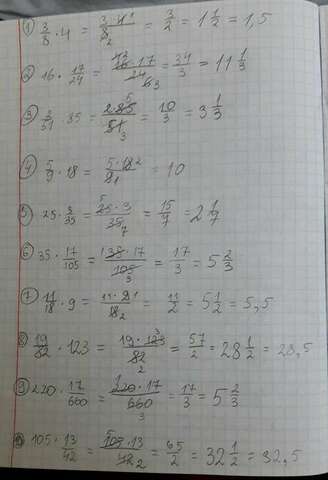 1) 3/8 · 4 = 3·4¹/8₂ = 3/2 = 1 1/2 = 1,5
2) 16 · 17/24 = 16·17/24 = 34/3 = 11 1/3
3) 2/51 · 85 = 2·85⁵/51₃ = 10/3 = 3 1/3
4) 5/9 · 18 = 5·18²/9₁ = 10
5) 25 · 3/35 = ⁵25·3/35₇ = 15/7 = 2 1/7
6) 35 · 17/105 = ¹35·17/105₃ = 17/3 = 5 2/3
7) 11/18 · 9 = 11·9¹/18₂ = 11/2 = 5 1/2 = 5,5
8) 19/82 · 123 = 19·123³/82₂ = 57/2 = 28 1/2 = 28,5
9) 220 · 17/660 = ¹220·17/660₃ = 17/3 = 5 2/3
10) 105 · 13/42 = ⁵105·13/42₂ = 65/2 = 32 1/2 = 32,5